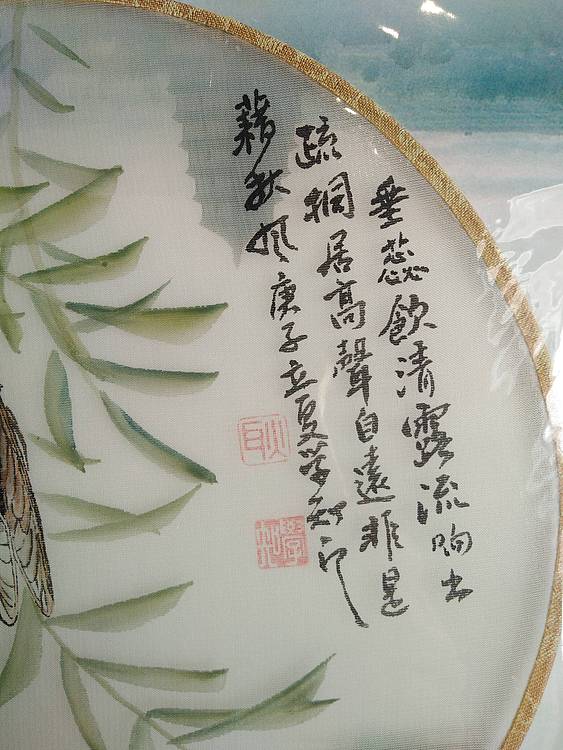 垂蕊飲清露流响出
疏桐居高聲自遠非是
藉秋风庚子立夏学
耿
學